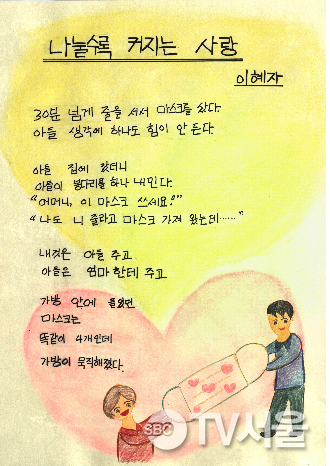 나눌수록 커지는 사랑
이혜자
30분 넘게 줄을 서서 마스크를 샀다.
아들 생각에 하나도 힘이 안 든다.
아들 집에 갔더니
아들이 봉다리를 하나 내민다.
"어머니, 이 마스크 쓰세요!"
"나도 니 줄라고 마스크 가져 왔는데……"
내것은 아들 주고
아들은 엄마한테 주고
가방 안에 들었던
마스크는
똑같이 4개인데
가방이 묵직해졌다.
SBC TV서울